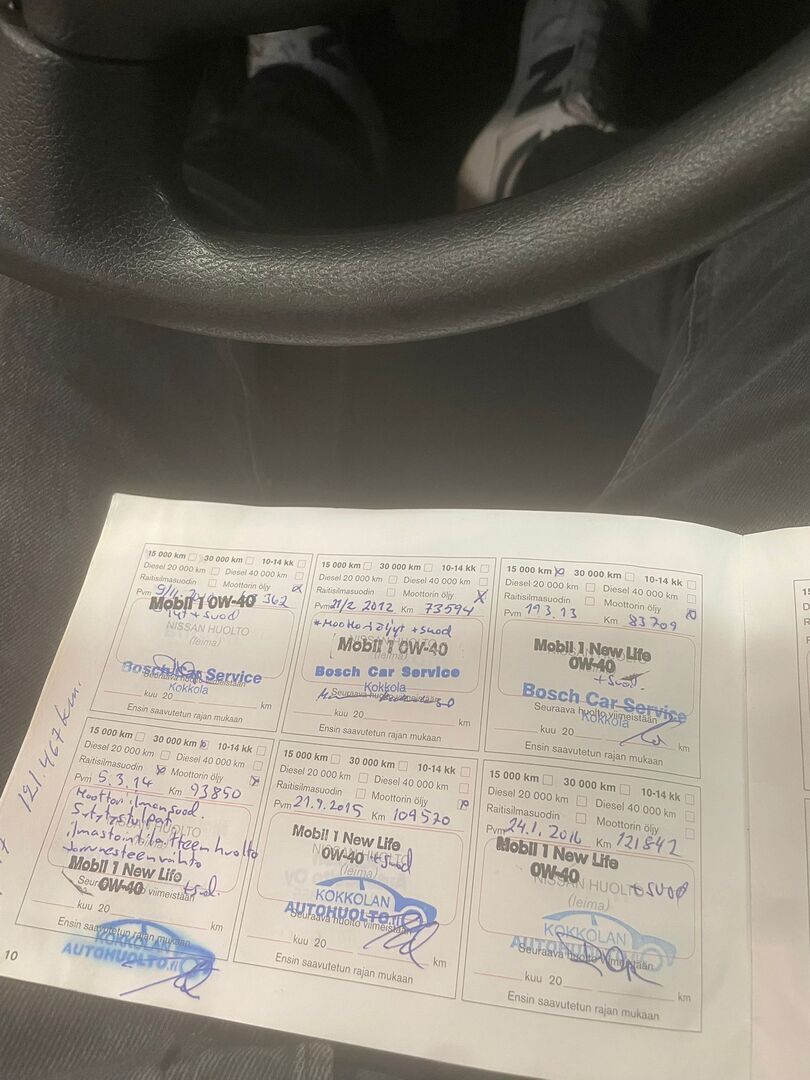 15 000 km 30 000 km 10-14 kk
Diesel 20 000 Diesel 40 000
Raitisilmasuodin Moottorin öljy
Pvm 9/11. Km 362
Mobil 1 0W-40
+ suod
NISSAN HUOLTO
(leima)
Bosch Car Service
Seuraava huolto viimeistään
Kokkola
kuu 20 km
Ensin saavutetun rajan mukaan
15 000 km 30 000 km 10-14 kk
Diesel 20 000 Diesel 40 000
Raitisilmasuodin Moottorin öljy X
Pvm 21/2 2012 Km 73594
öljyt + suod
Mobil 1 0W-40
(leima)
Bosch Car Service
Kokkola
Seuraava huolto viimeistään
kuu 20 km
Ensin saavutetun rajan mukaan
15 000 km x 30 000 km 10-14 kk
Diesel 20 000 Diesel 40 000
Raitisilmasuodin Moottorin öljy
Pvm 19 3.13 Km 83709
Mobil 1 New Life
0W-40
+ suod.
Bosch Car Service
Seuraava huolto viimeistään
Kokkola
kuu 20 km
Ensin saavutetun rajan mukaan
121.467 km.
15 000 km 30 000 km 10-14 kk
Diesel 20 000 Diesel 40 000
Raitisilmasuodin x Moottorin öljy x
Pvm 5.3.14 Km 93850
Moottori ilmansuod.
Sytytystulpat
ilmastointilaitteen huolto
Jarrunesteen vaihto
Mobil 1 New Life
0W-40 + suod.
kuu 20
Ensin saavutetun rajan mukaan
KOKKOLAN
AUTOHUOLTO.fi
15 000 km 30 000 km 10-14 kk
Diesel 20 000 Diesel 40 000
Raitisilmasuodin Moottorin öljy
Pvm 21.9.2015 Km 109570
Mobil 1 New Life
0W-40 + suod
NISSAN HUOLTO
(leima)
KOKKOLAN
AUTOHUOLTO.fi
Seuraava huolto viimeistään
kuu 20 km
Ensin saavutetun rajan mukaan
15 000 km 30 000 km 10-14 kk
Diesel 20 000 Diesel 40 000
Raitisilmasuodin Moottorin öljy
Pvm 24.1.2016 Km 121842
Mobil 1 New Life
0W-40 + suod
NISSAN HUOLTO
(leima)
KOKKOLAN
AUTOHUOLTO
Seuraava huolto viimeistään
kuu 20 km
Ensin saavutetun rajan mukaan
10